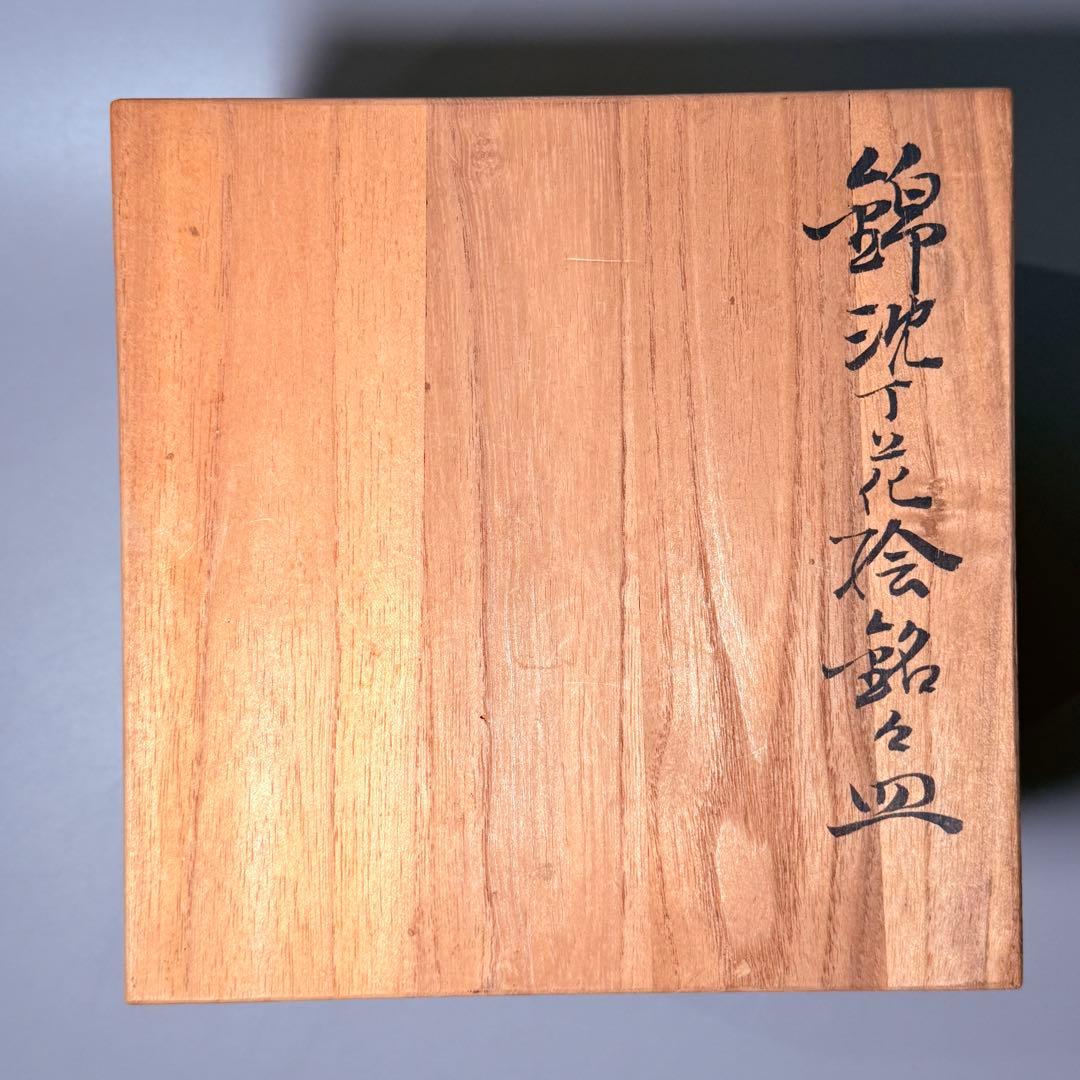 錦沈丁花絵銘々皿